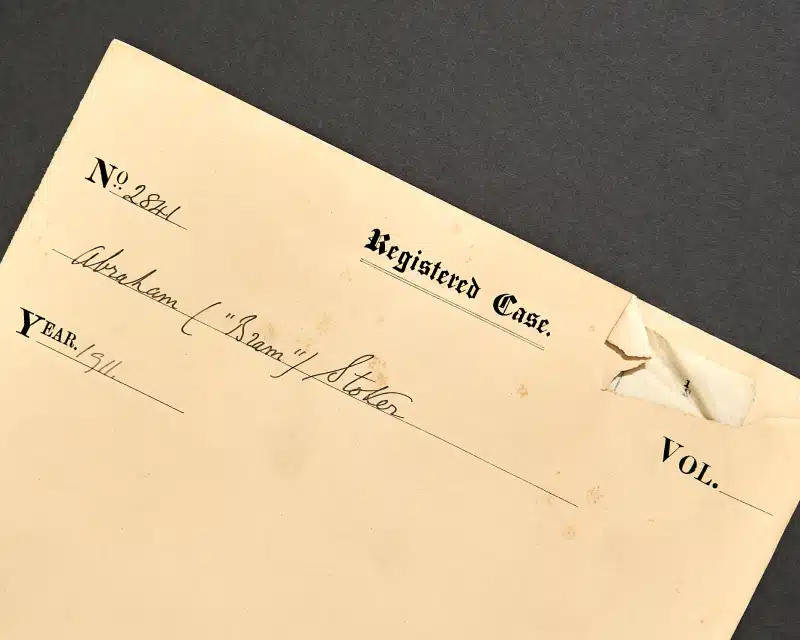 Nº 2841
Registered Case.
Abraham ("Bram") Stoker
YEAR. 1911.
1
VOL.